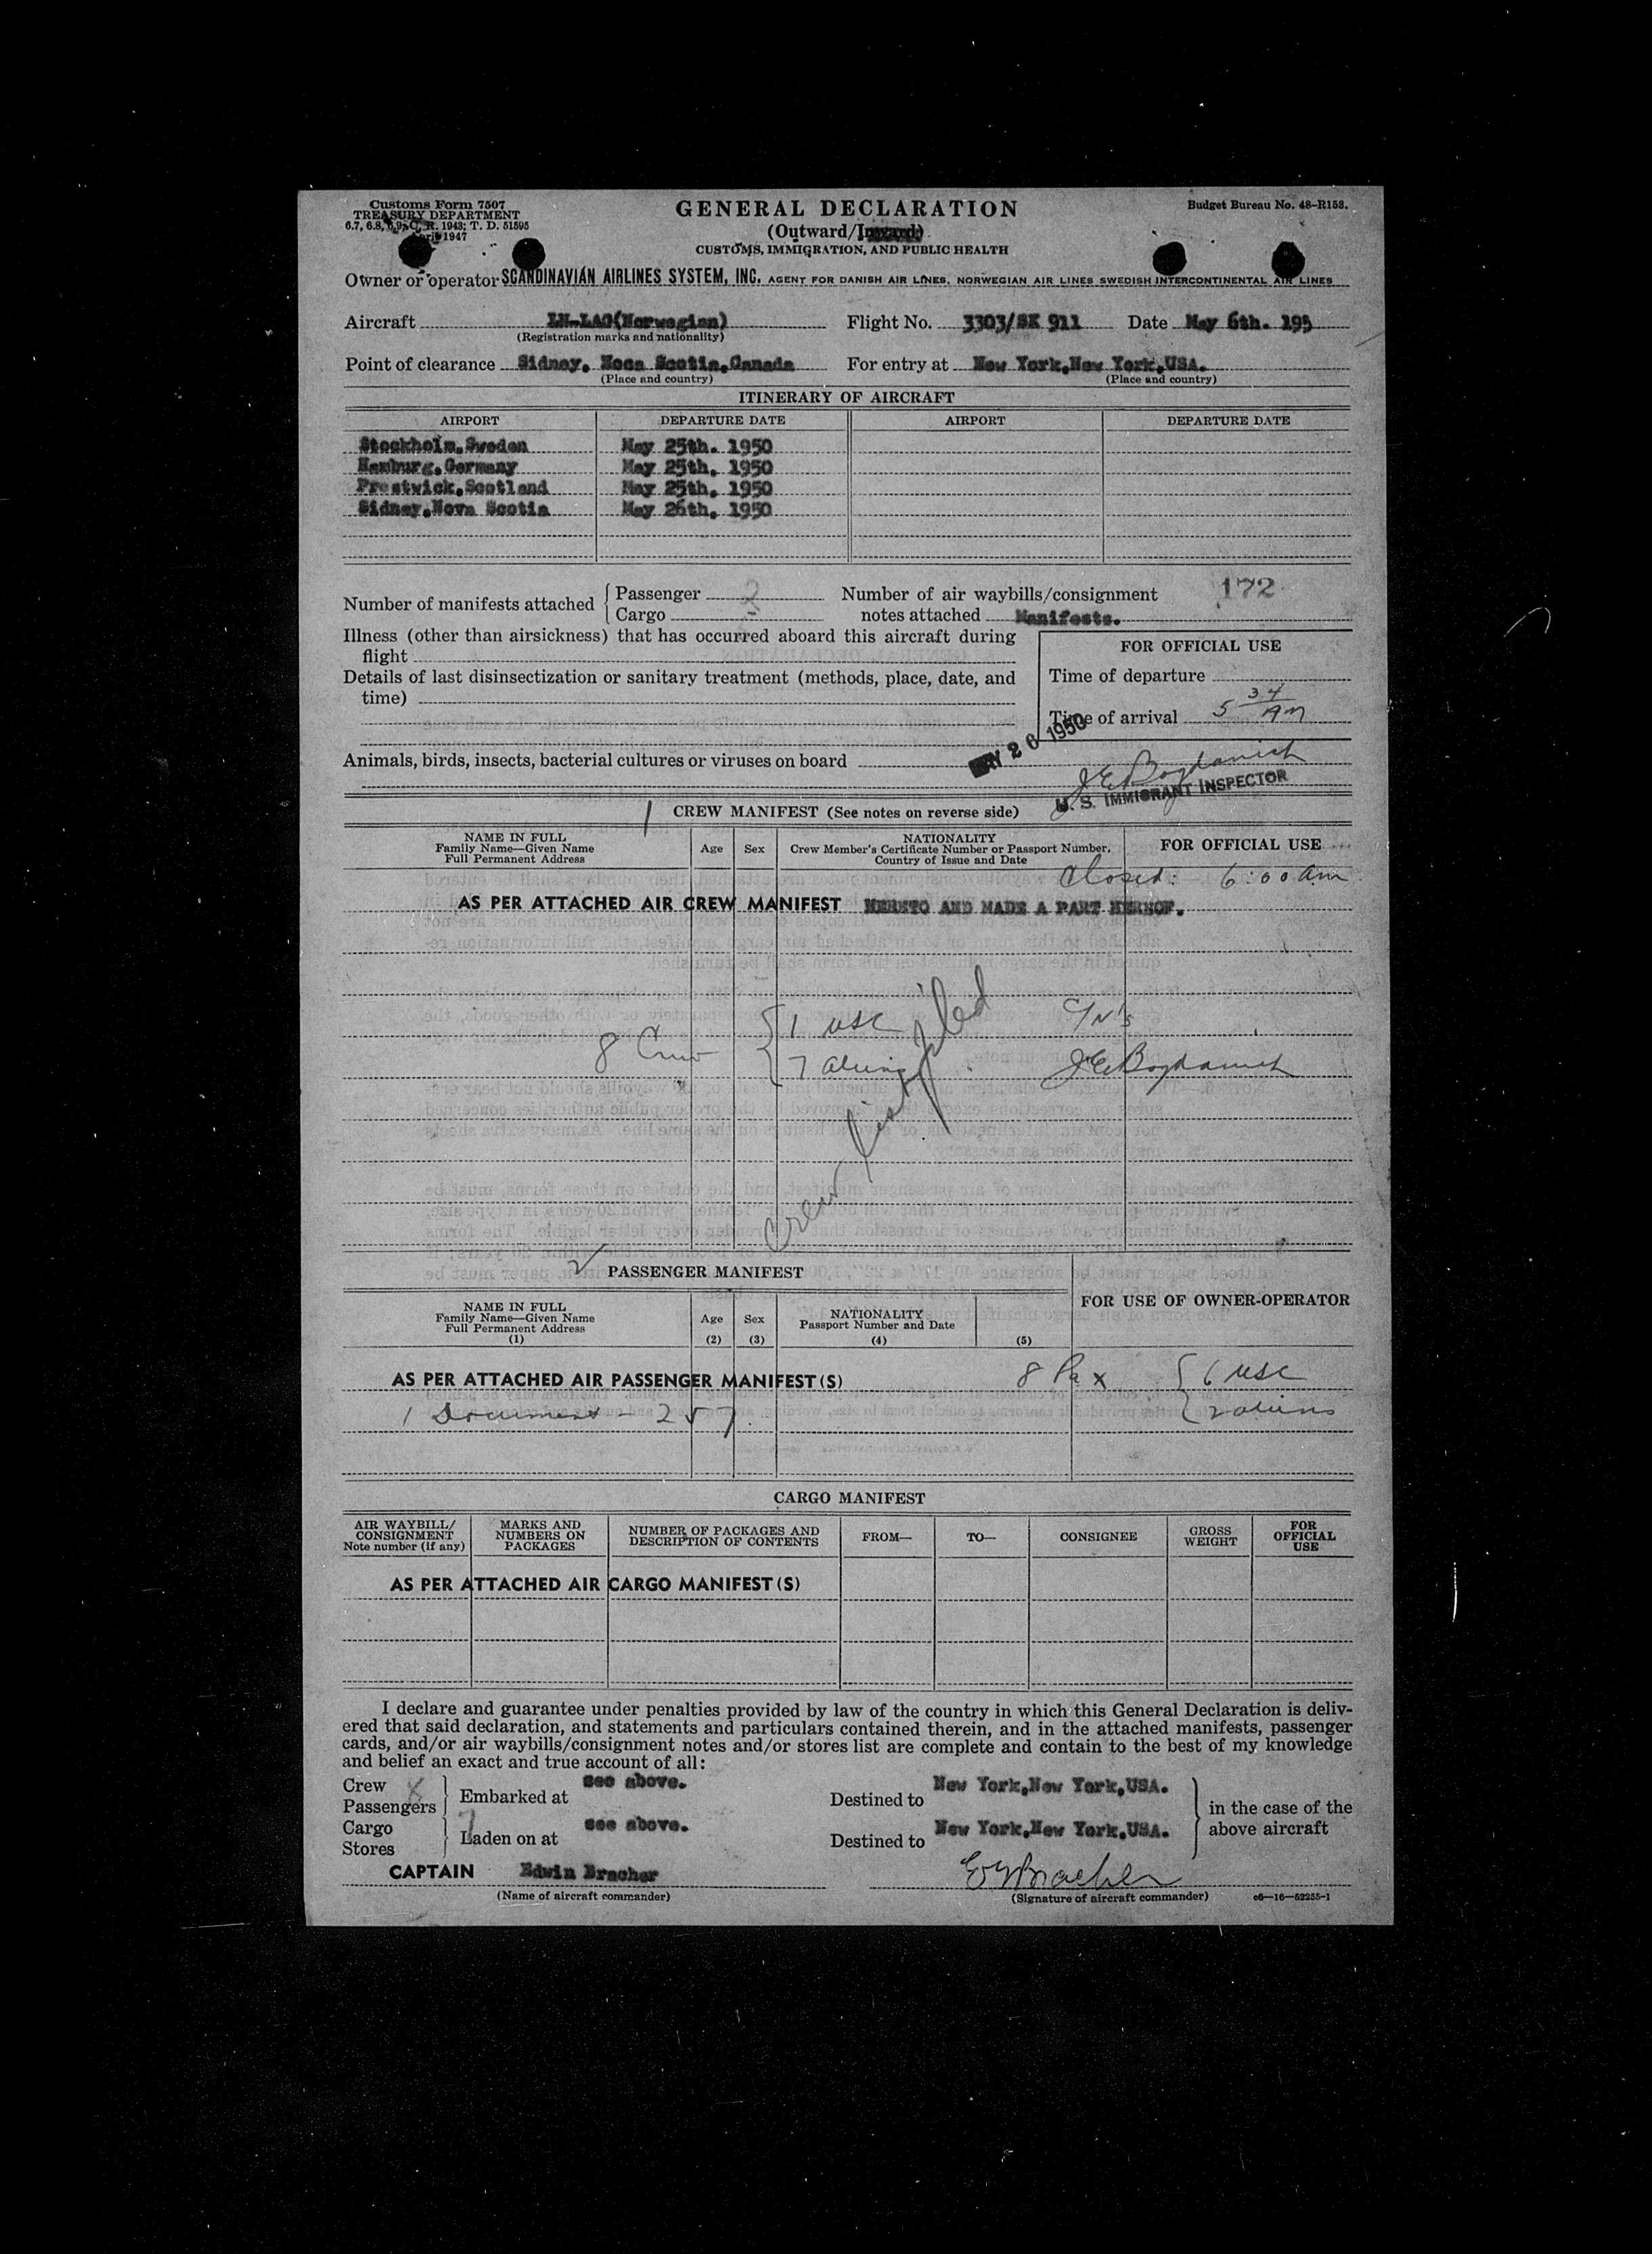 Customs Form 7507
TREASURY DEPARTMENT
6.7, 6.8, 6.9, C. R. 1943; T. D. 51595
April 1947
GENERAL DECLARATION
(Outward/Inward)
CUSTOMS, IMMIGRATION, AND PUBLIC HEALTH
Budget Bureau No. 48-R158.
Owner or operator SCANDINAVIAN AIRLINES SYSTEM, INC. AGENT FOR DANISH AIR LINES, NORWEGIAN AIR LINES SWEDISH INTERCONTINENTAL AIR LINES
Aircraft LN-LAG(Norwegian) Flight No. 3303/SK 911 Date May 6th. 195
(Registration marks and nationality)
Point of clearance Sidney, Noca Scotia,Canada For entry at New York,New York,USA.
(Place and country) (Place and country)
ITINERARY OF AIRCRAFT
AIRPORT DEPARTURE DATE AIRPORT DEPARTURE DATE
Stockholm,Sweden May 25th. 1950
Hamburg,Germany May 25th. 1950
Prestwick,Scotland May 25th. 1950
Sidney,Nova Scotia May 26th. 1950
Number of manifests attached { Passenger 2 Number of air waybills/consignment 172
Cargo - notes attached Manifests.
Illness (other than airsickness) that has occurred aboard this aircraft during
flight
FOR OFFICIAL USE
Details of last disinsectization or sanitary treatment (methods, place, date, and
time)
Time of departure
Time of arrival 5 34 AM
MAY 26 1950
Animals, birds, insects, bacterial cultures or viruses on board
J E Bogdanich
U. S. IMMIGRANT INSPECTOR
1 CREW MANIFEST (See notes on reverse side)
NAME IN FULL
Family Name—Given Name
Full Permanent Address
Age Sex
NATIONALITY
Crew Member's Certificate Number or Passport Number,
Country of Issue and Date
FOR OFFICIAL USE
Closed: 6:00 am
AS PER ATTACHED AIR CREW MANIFEST HERETO AND MADE A PART HEREOF.
8 Crew { 1 USC C/N's
7 aliens J E Bogdanich
Crew list filed
2 PASSENGER MANIFEST
NAME IN FULL
Family Name—Given Name
Full Permanent Address
(1)
Age
(2)
Sex
(3)
NATIONALITY
Passport Number and Date
(4)
(5)
FOR USE OF OWNER-OPERATOR
AS PER ATTACHED AIR PASSENGER MANIFEST(S) 8 Pax { 6 USC
1 Document - 257 2 aliens
CARGO MANIFEST
AIR WAYBILL/
CONSIGNMENT
Note number (if any)
MARKS AND
NUMBERS ON
PACKAGES
NUMBER OF PACKAGES AND
DESCRIPTION OF CONTENTS
FROM—
TO—
CONSIGNEE
GROSS
WEIGHT
FOR
OFFICIAL
USE
AS PER ATTACHED AIR CARGO MANIFEST(S)
I declare and guarantee under penalties provided by law of the country in which this General Declaration is deliv-
ered that said declaration, and statements and particulars contained therein, and in the attached manifests, passenger
cards, and/or air waybills/consignment notes and/or stores list are complete and contain to the best of my knowledge
and belief an exact and true account of all:
Crew
Passengers } Embarked at see above. Destined to New York,New York,USA.
Cargo
Stores } Laden on at see above. Destined to New York,New York,USA.
} in the case of the
above aircraft
CAPTAIN Edwin Bracher
(Name of aircraft commander) (Signature of aircraft commander) c6—16—52255-1